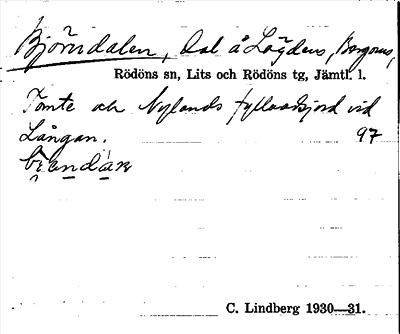 Björndalen, Dal å Lögdens, Borgens,
Rödöns sn, Lits och Rödöns tg, Jämtl. l.
Tomte och Nylands fylloskjord vid
Långan. 97
C. Lindberg 1930—31.